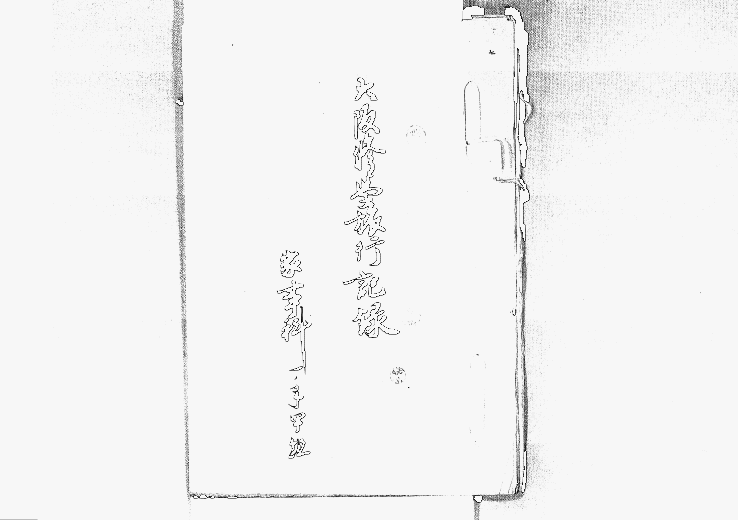 大阪修学旅行記録
家事科一年甲組